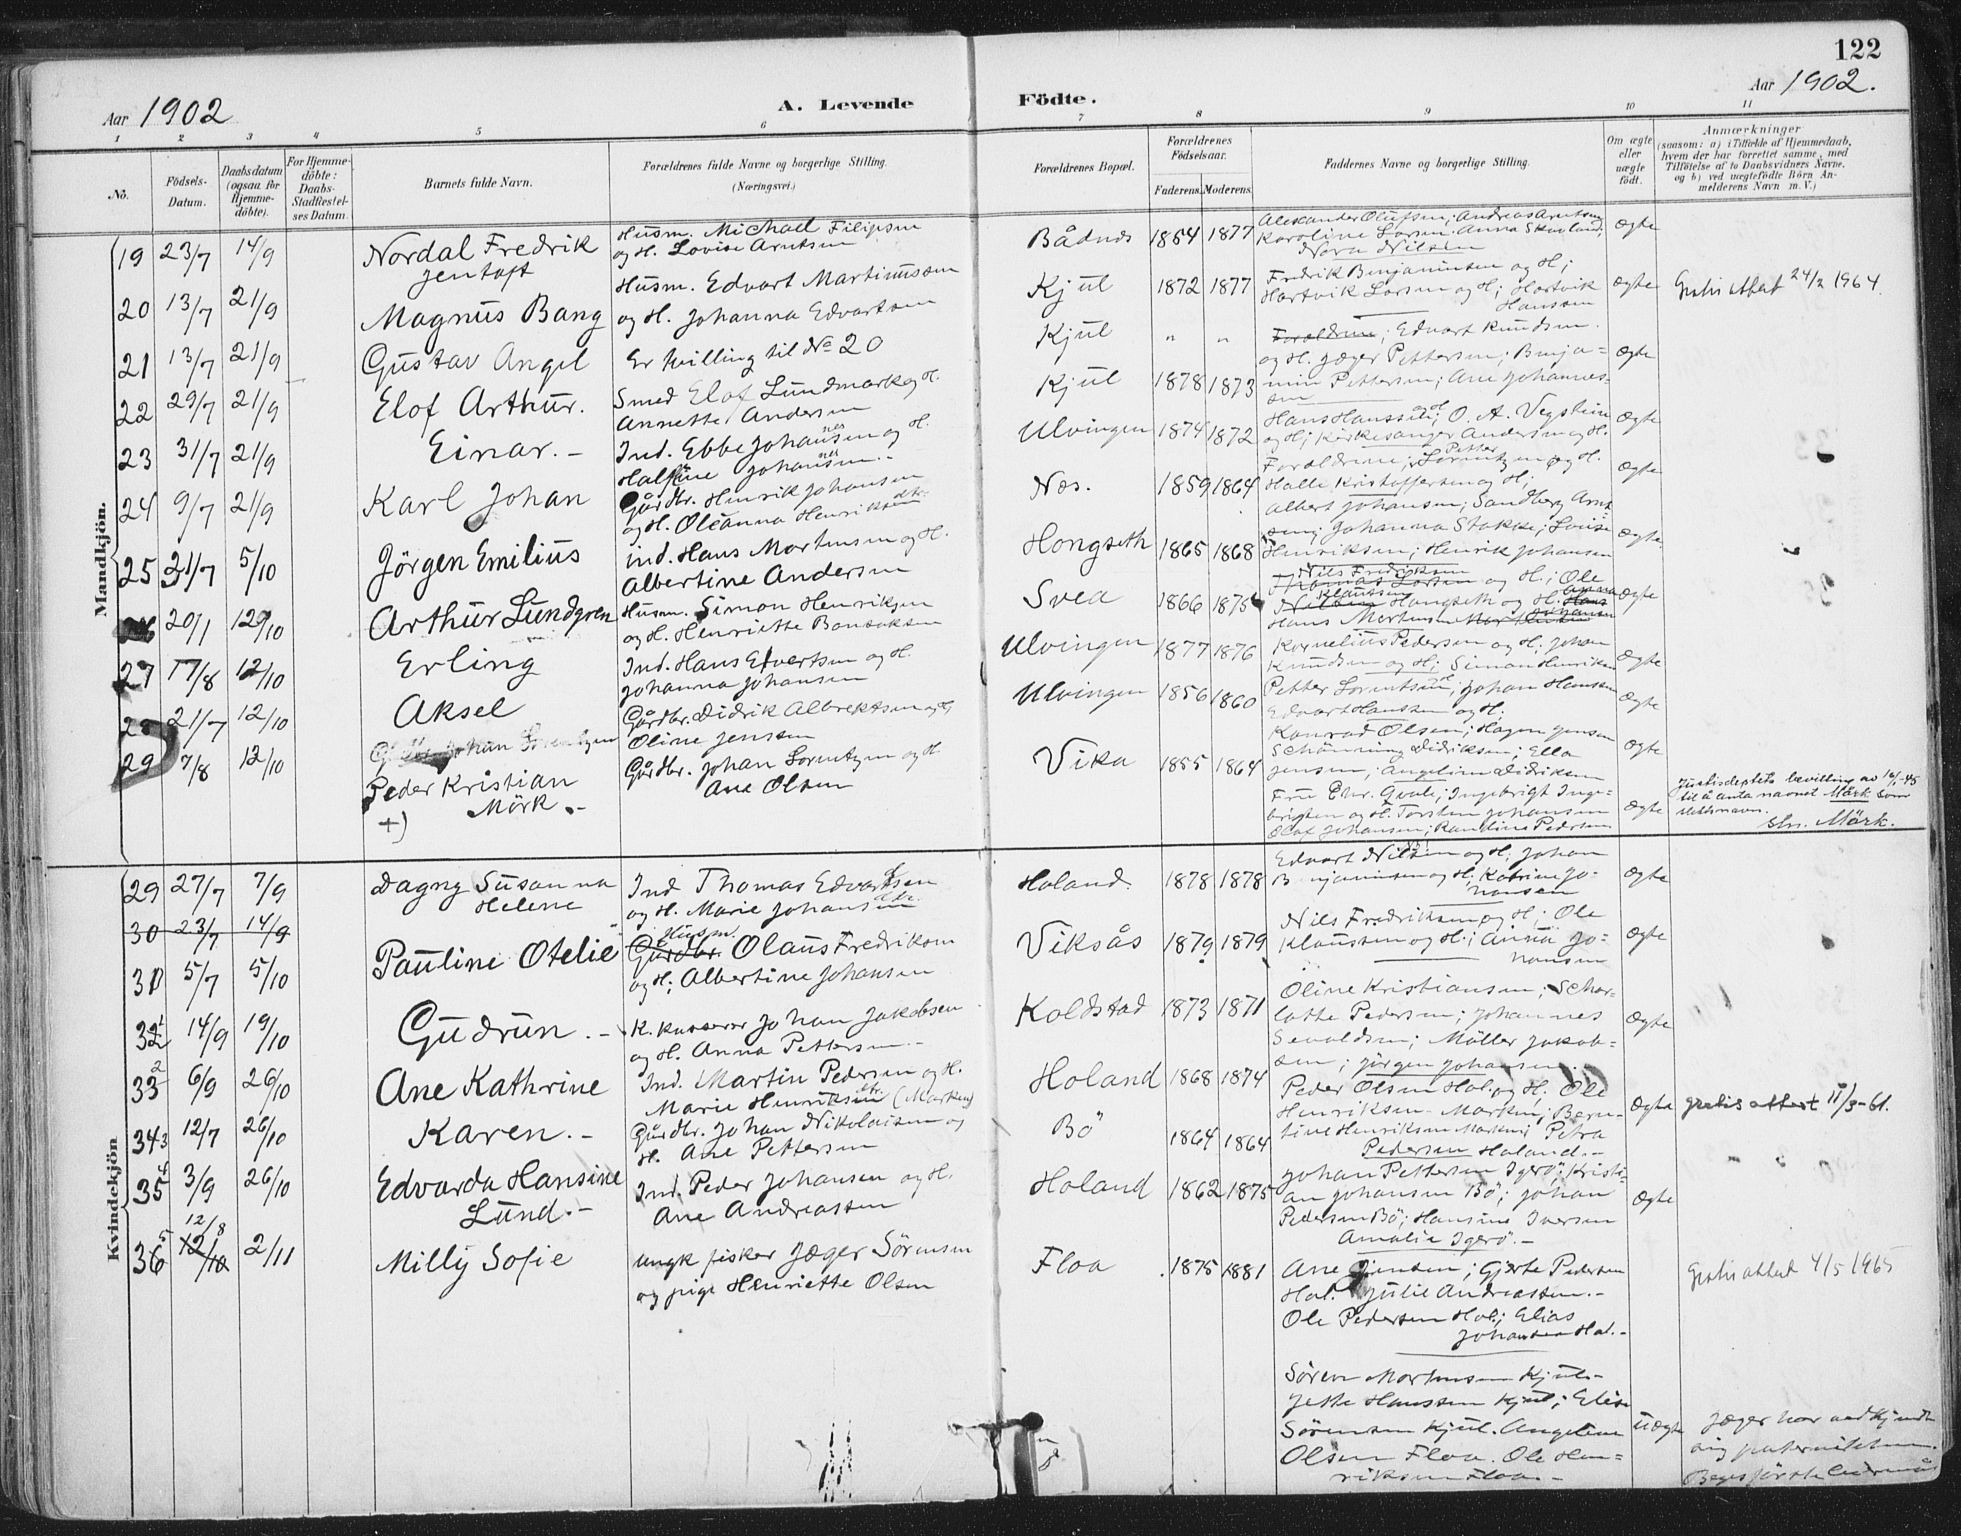 122
Aar 1902
A. Levende Födte.
Aar 1902.
1 2 3 4 5 6 7 8 9 10 11
No.
Födsels-Datum.
Daabsdatum (ogsaa for Hjemme-döbte).
For Hjemme-döbte: Daabs-Stadfæstel-ses Datum.
Barnets fulde Navn.
Forældrenes fulde Navne og borgerlige Stilling.
(Næringsvei.)
Forældrenes Bopæl.
Forældrenes Födselsaar.
Faderens. Moderens.
Faddernes Navne og borgerlige Stilling.
Om ægte eller uægte födt.
Anmærkninger
(saasom: a) i Tilfælde af Hjemmedaab, hvem der har forrettet samme, med Tilföielse af to Daabsvidners Navne, og b) ved uægtefödte Börn An-melderens Navn m. V.)
Mandkjön.
19 23/7 14/9 Nordal Fredrik Jentoft
Husm. Michael Filipsen
og H. Lovise Arntsen
1854 1877
Alexander Olufsen; Andreas Arntsen
Karoline Larsen
Nora Nilsen
Ægte
20 13/7 21/9 Magnus Bang
Husm. Edvart Martinussen
og H. Johanna Edvartsen
Kjul 1872 1877
Fredrik Benjaminsen og H;
Hartvik Larsen og H; Hartvik
Hanssen
Ægte
Gratis attest 24/2 1964.
21 13/7 21/9 Gustav Angel
Er tvilling til No 20
Kjul " "
Forældrene; Edvart Knudsen.
og H. Jæger Pettersen; Benja=
Ægte
22 29/7 21/9 Elof Arthur.
Smed Elof Lundmark og H.
Annette Andersen
Kjul 1878 1873
min Pettersen; Ane Johannes-
sen
23 31/7 21/9 Einar. -
Ind. Ebbe Johansen og H.
Johansen -
Ulvingen 1874 1872
Hans Hanssen; O. A. Vegstein
og H; Kirkesanger Andersen og H.
Ægte
24 9/7 21/9 Karl Johan
Gårdbr. Henrik Johansen
og H. Oleanna Henriksen
Nes. 1859 1864
Forældrene; Petter Lorentzen og H.
Halle Kristoffersen og H;
Albert Johansen; Sandberg Arnt
Ægte
25 21/7 5/10 Jörgen Emilius
ind. Hans Mortensen og H.
Albertine Andersen
Hongseth 1865 1868
sen; Johanna Stokke; Lovise
Henriksen; Henrik Johansen
Ægte
20/1 12/10 Arthur Lundgren
Husm. Simon Henriksen
og H. Henriette Bonsaksen
Svea 1866 1875
Nils Fredriksen
Thomas Larsen og H.; Ole
Klaussen Hongseth og H.
Hans Mortensen
Ægte
27 17/8 12/10 Erling
Ind. Hans Edvertsen og H.
Johanna Johansen
Ulvingen 1877 1876
Kornelius Pedersen og H; Johan
Knudsen og H; Simon Henriksen
Ægte
21/7 12/10 Aksel
Gårdbr. Didrik Albrektsen og H
Oline Jenssen
Ulvingen 1856 1860
Petter Lorentsen; Johan Hanssen
Edvart Hanssen og H.
Ægte
29 7/8 12/10 Peder Kristian
Mörk. -
+)
Gårdbr. Johan Lorentzen og H
Ane Olsen
Vika 1855 1864
Konrad Olsen; Hagen Jensen
Schönning Didriksen; Ella
Jensen; Angelina Didriksen
Ægte
Fru Ehr. Qvale; Ingebrigt Inge=
brigtsen og H. Torsten Johansen
Olaf Johansen; Randine Pedersen
Ægte
Justisdeptets bevilling av 16/1-45
til å anta navnet Mörk som
slektsnavn.
Mörk.
Kvindekjön
29 27/7 7/9 Dagny Susanna
Helene
Ind Thomas Edvartsen
og H. Marie Johansen
Holand. 1878 1878
Edvart Nilsen og H; Johan
Benjaminsen og H; Katrine Jo-
hansen
Ægte
30 23/7 14/9
31 5/7 5/10 Pauline Otelie
Husm.
Gårdbr. Olaus Fredriksen
og H; Albertine Johansen
Viksås 1879 1879
Nils Fredriksen og H; Ole
Klaussen og H; Anna Jo=
hansen
Ægte
32 14/9 19/10 Gudrun. -
K. kasserer Johan Jakobsen
og H. Anna Pettersen -
Koldstad 1873 1871
Oline Kristiansen; Schar-
lotte Pedersen; Johannes
Sevaldsen; Möller Jakob-
sen; Jörgen Johansen.
Ægte
33 6/9 26/10 Ane Kathrine
Ind. Martin Pedersen og H.
Marie Henriksen (Marken)
Holand 1868 1874
Peder Olsen Hol. og H. Ole
Henriksen Marken; Bern-
tine Henriksen Marken; Petra
Pedersen Holand. -
Ægte
gratis attest 11/3-61.
34 12/7 26/10 Karen. -
Gårdbr. Johan Nikolaisen og
H. Ane Pettersen
Bö 1864 1864
Johan Pettersen Igerö; Kristi-
an Johansen Bö; Johan
Pedersen Bö; Hansine Iversen
Amalie Igerö. -
Ægte
35 3/9 26/10 Edvarda Hansine
Lund. -
Ind. Peder Johansen og H.
Ane Andreassen
Holand 1862 1875
Ane Jensen; Gjerte Pedersen
Hol. Julie Andreassen. -
Ole Pedersen Hol.; Elias
Johansen Hol. -
36 12/8 12/10 2/11 Milly Sofie
ungk fisker Jæger Sörensen
og pige Henriette Olsen
Floa 1875 1881
Sören Mortensen Kjul. -
Jette Hanssen Kjul; Elise
Sörensen Kjul. Angeline
Olsen Floa. Ole Hen=
riksen Floa. -
Uægte
Gratis attest 4/5 1965
Jæger har vedkjendt
sig paterniteten.